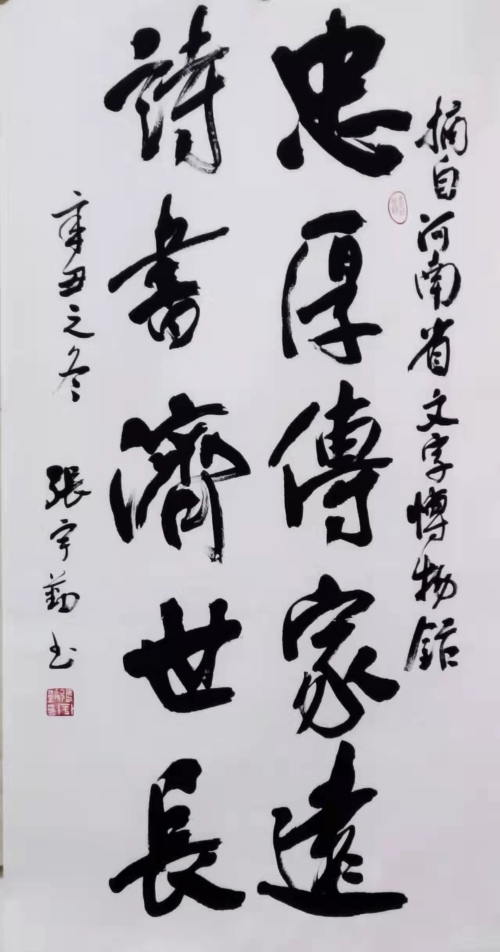 摘自河南省文字博物館
忠厚傳家遠
詩書濟世長
辛丑之冬
張宇勤书